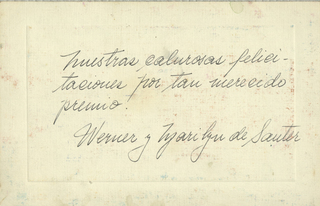 nuestras calurosas felici-
taciones por tan merecido
premio.
Werner y Marilyn de Santer